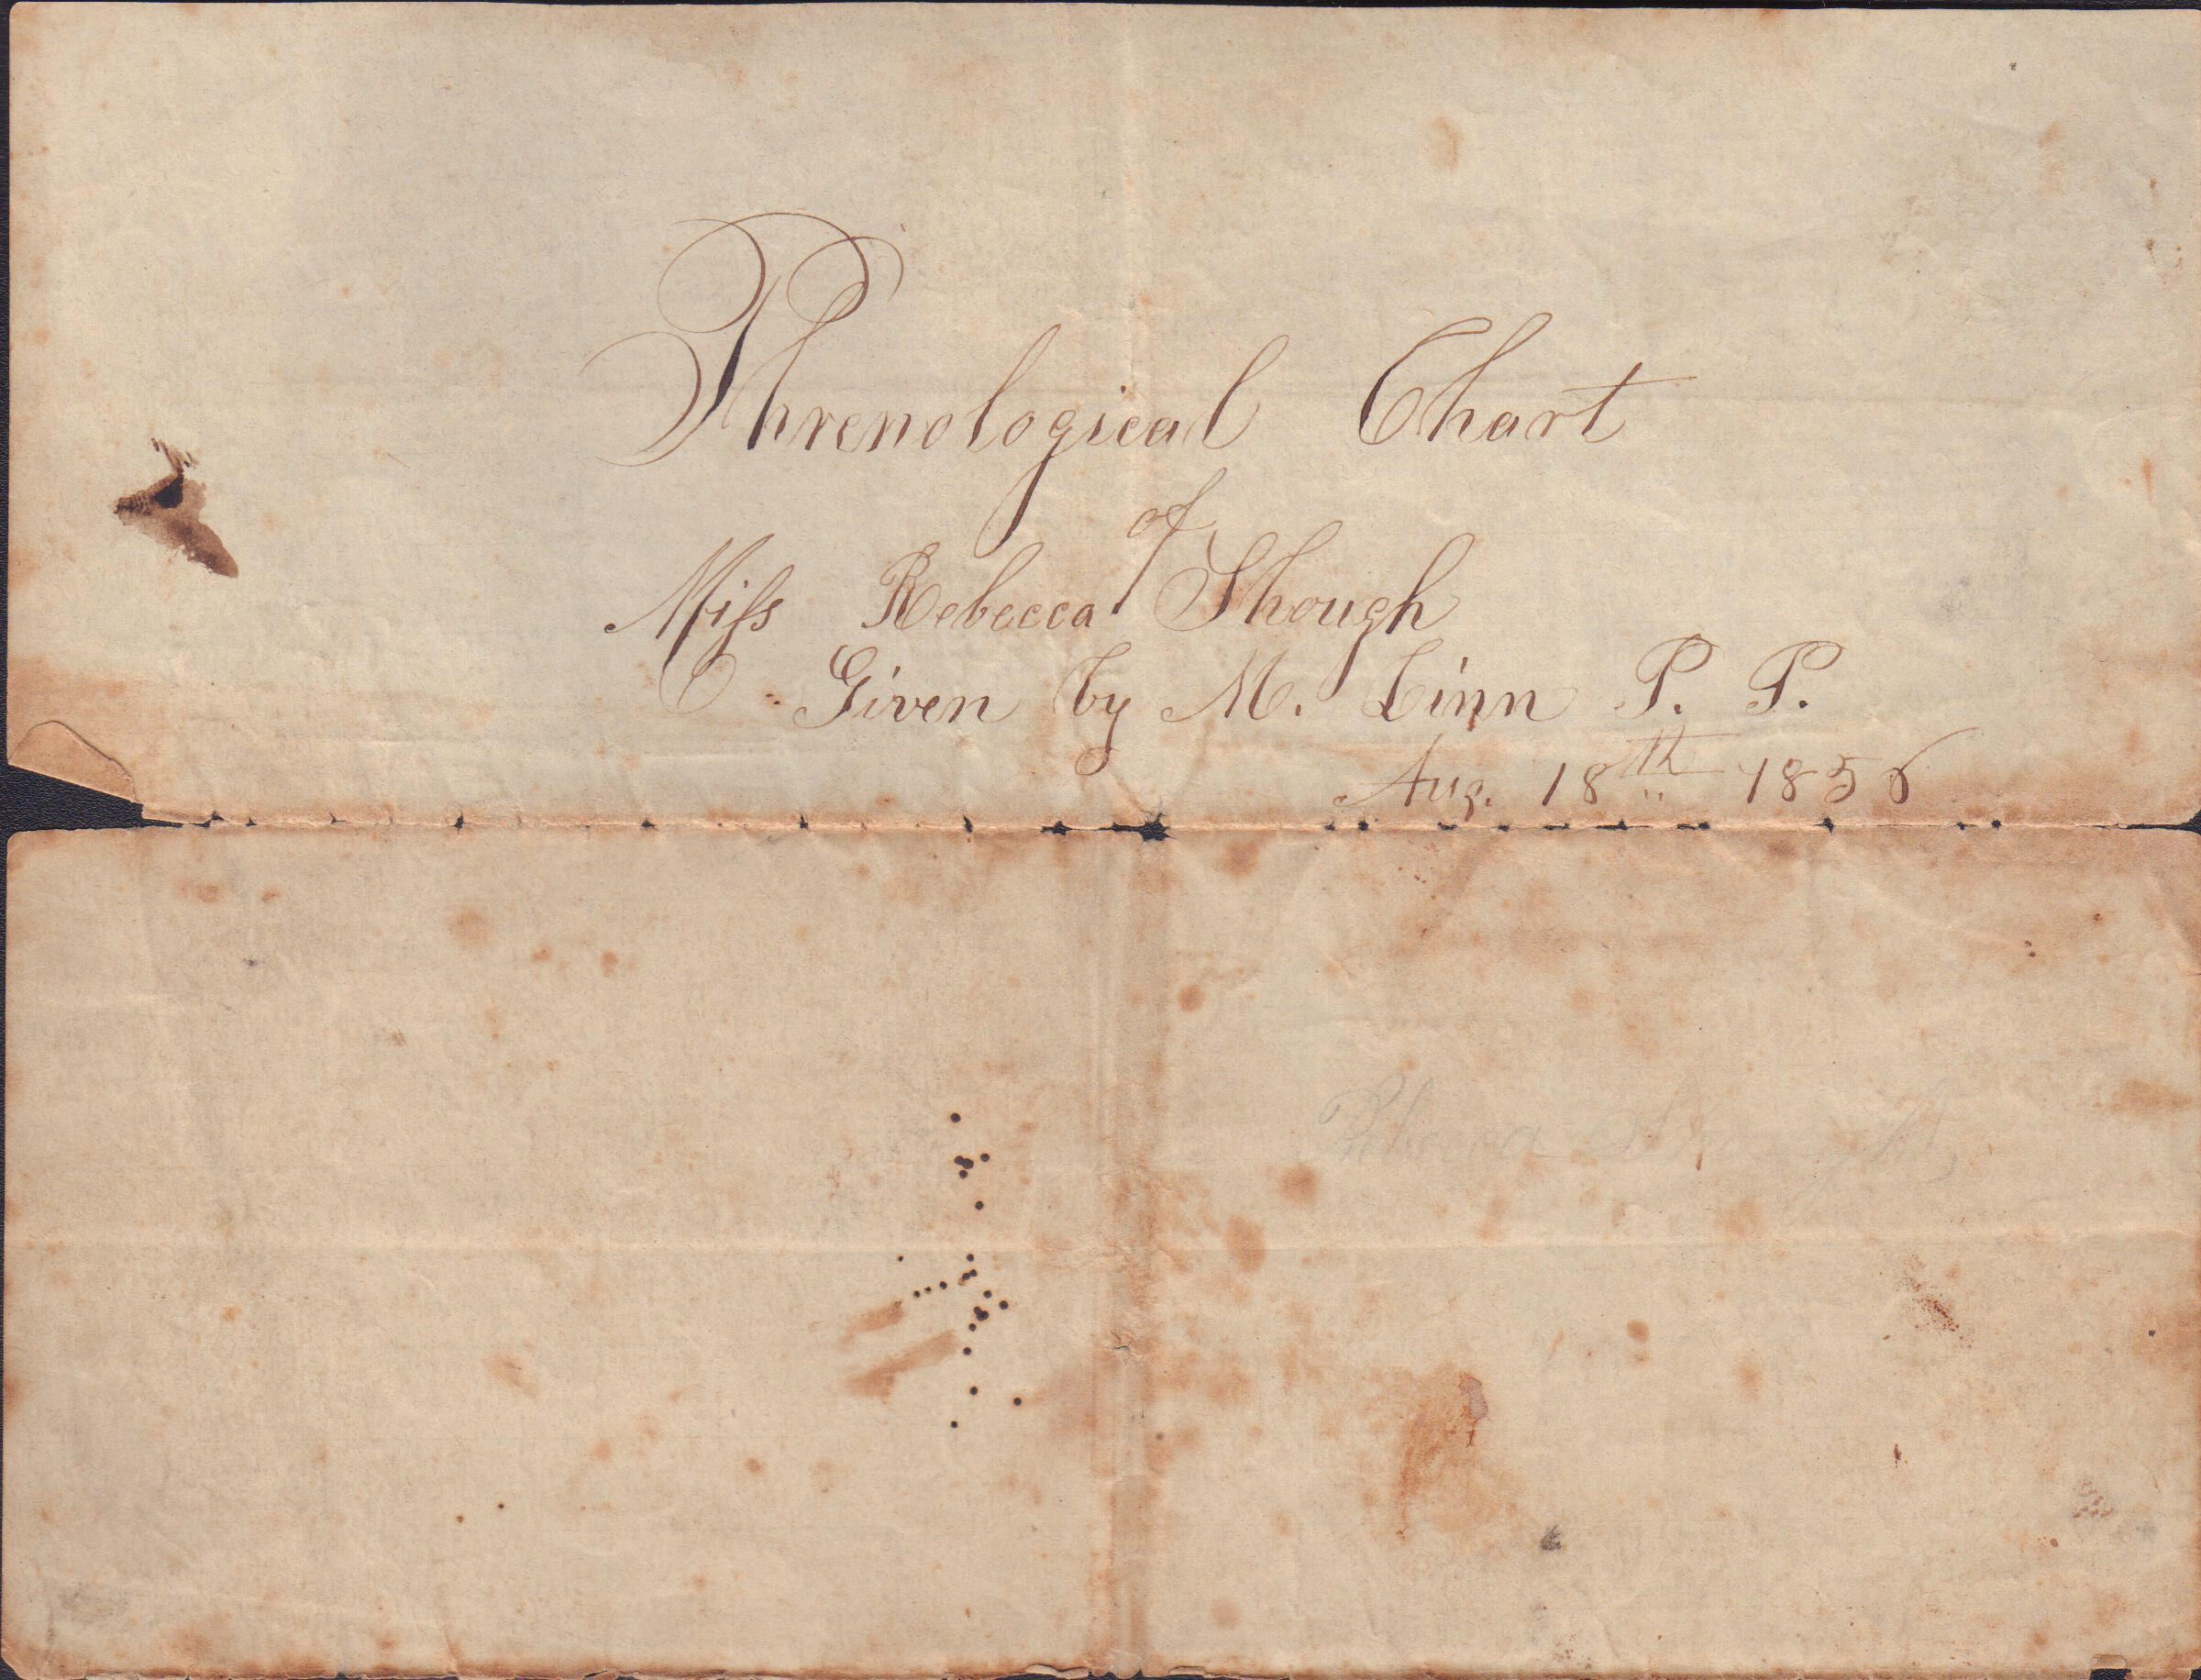 Phrenological Chart
of
Miſs Rebecca Shough
Given by M. Linn P. P.
Aug. 18th 1856
Rebecca